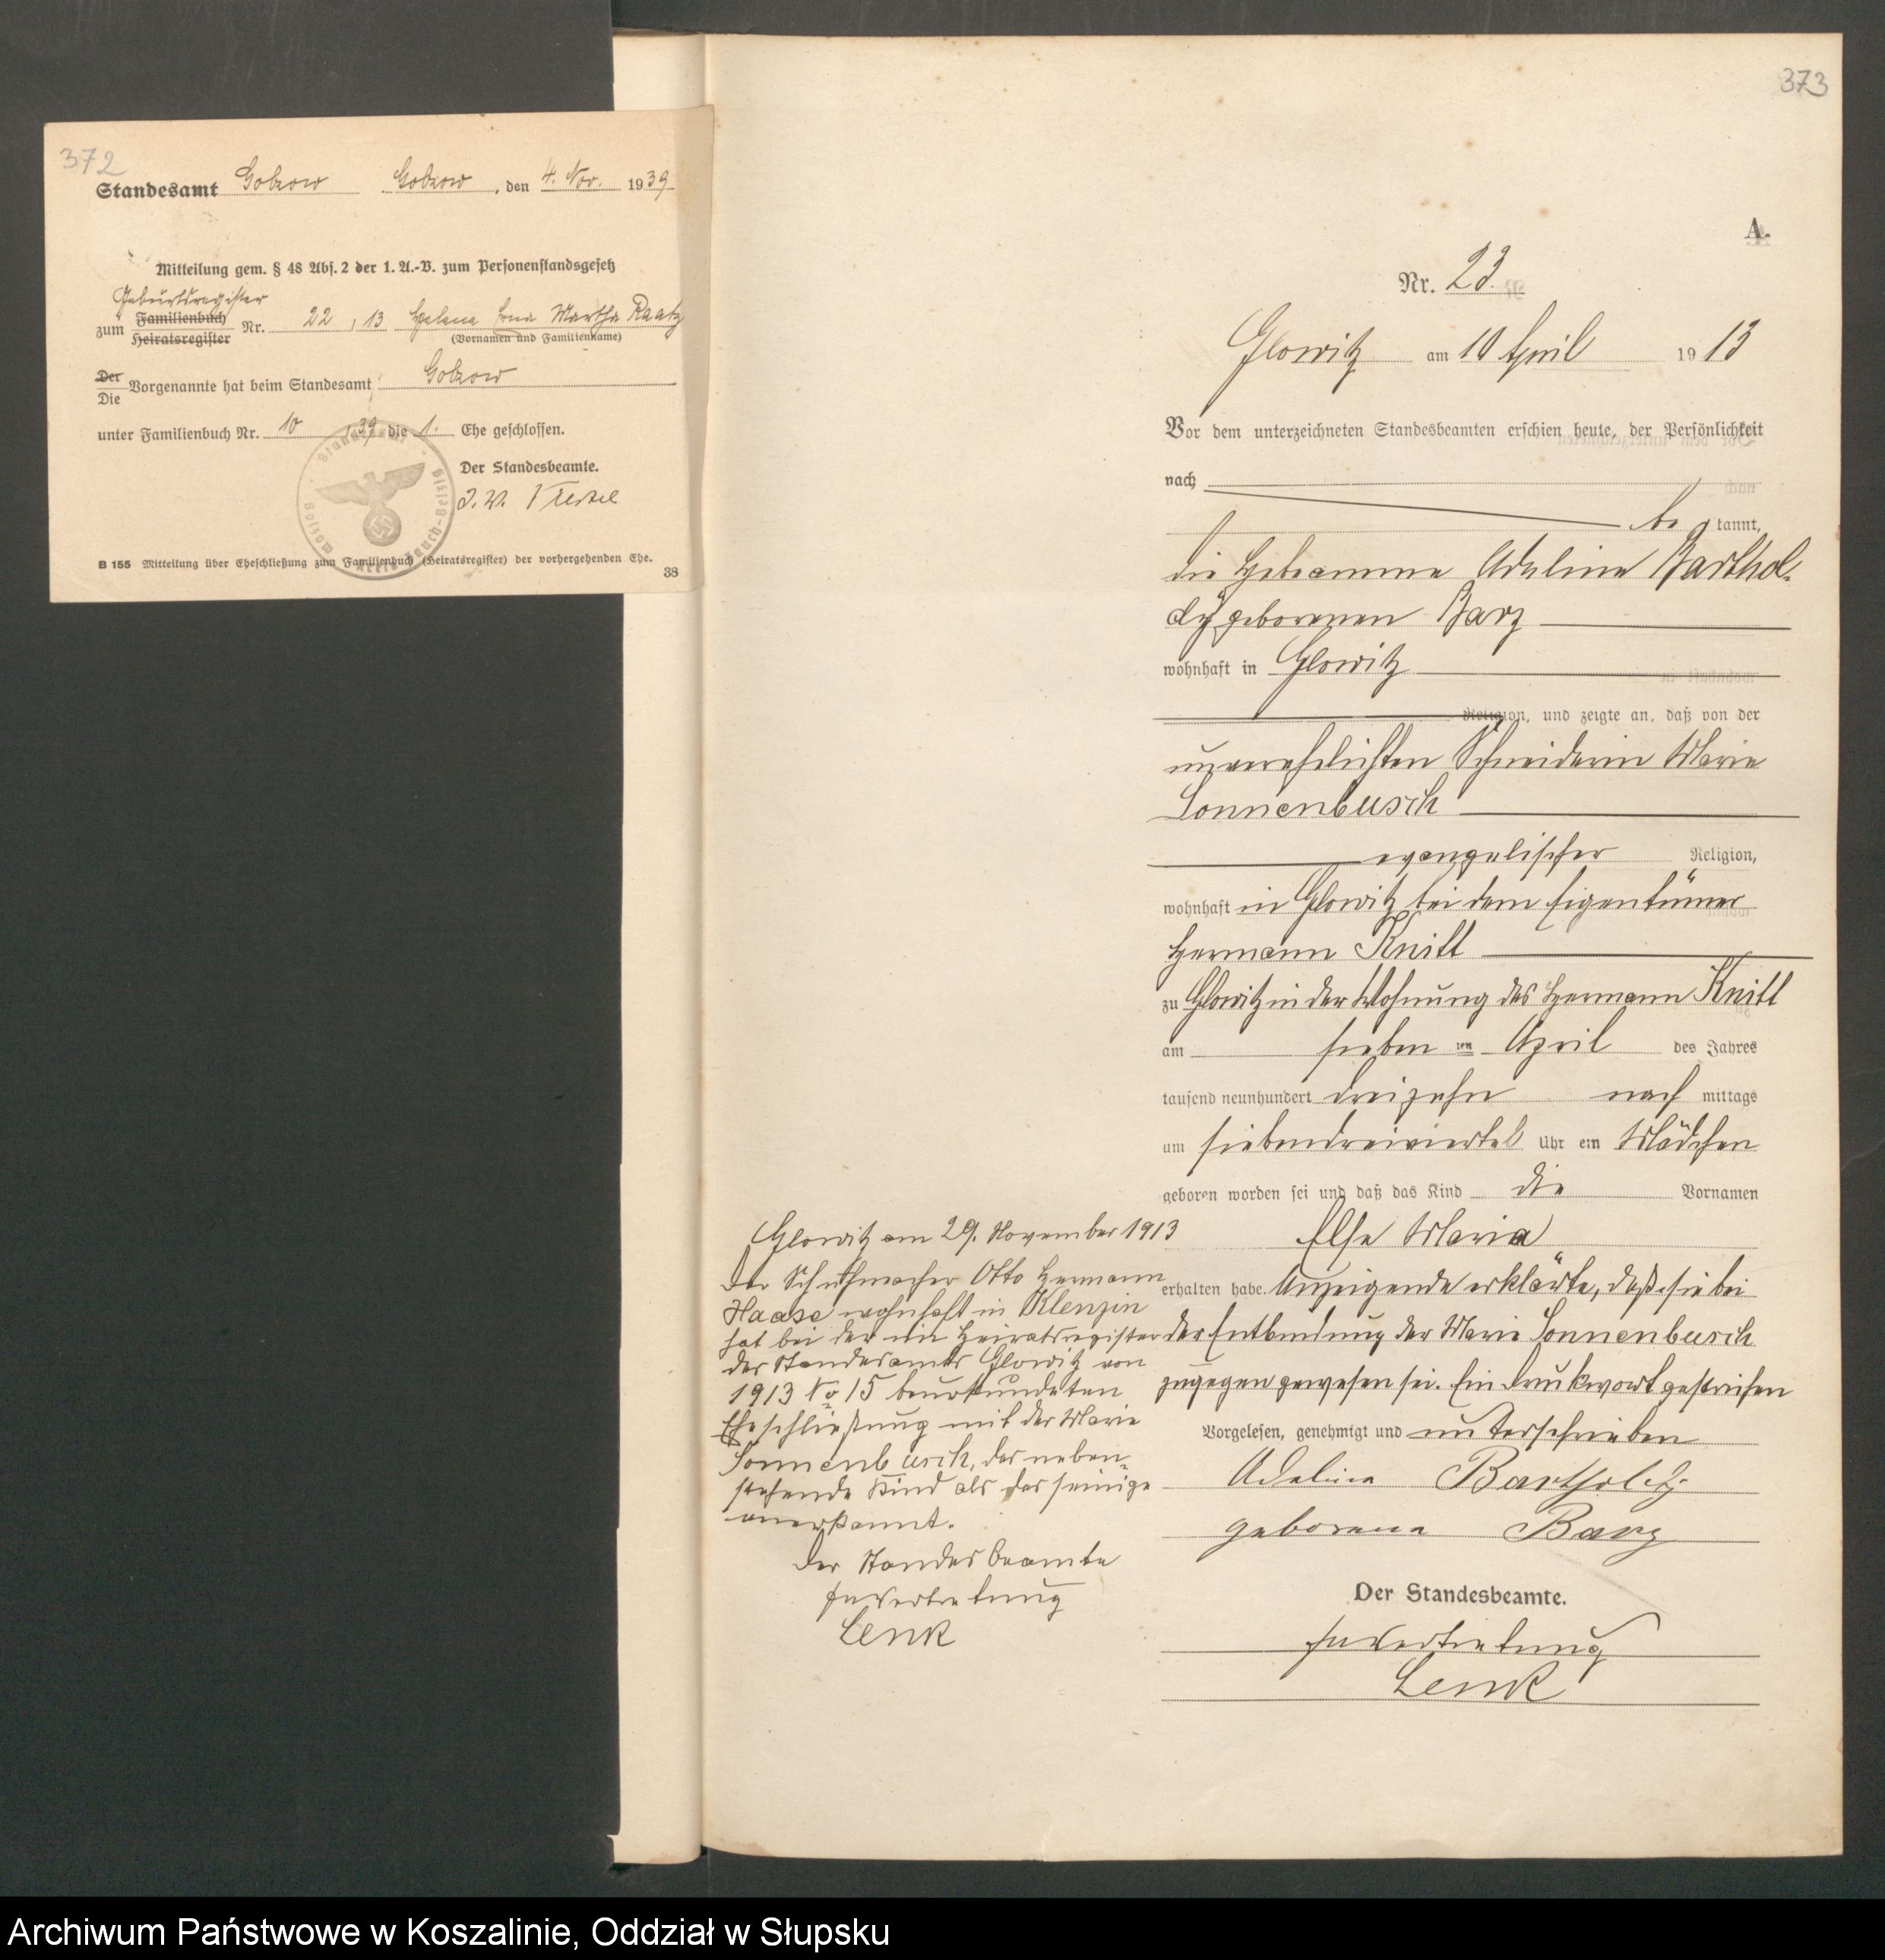 372
Standesamt Golzow Golzow, den 4. Nov. 1939
Mitteilung gem. § 48 Abs. 2 der 1. A.-V. zum Personenstandsgesetz
Geburtsregister
zum Familienbuch Nr. 22, 13 Helene Erna Martha Raatz
Heiratsregister
(Vornamen und Familienname)
Der
Die Vorgenannte hat beim Standesamt Golzow
unter Familienbuch Nr. 10, 39 die 1. Ehe geschlossen.
Der Standesbeamte.
J. V.
B 155 Mitteilung über Eheschließung zum Familienbuch (Heiratsregister) der vorhergehenden Ehe.
38
373
A.
Nr. 23.
Glowitz am 10 April 1913
Vor dem unterzeichneten Standesbeamten erschien heute, der Persönlichkeit
nach
be kannt,
die Hebeamme Adeline Barthol-
dy geborenen Barz
wohnhaft in Glowitz
Religion, und zeigte an, daß von der
unverehelichten Schneiderin Marie
Sonnenbusch
evangelischer Religion,
wohnhaft in Glowitz bei dem Eigentümer
Hermann Knitt
zu Glowitz in der Wohnung des Hermann Knitt
am sieben ten April des Jahres
tausend neunhundert dreizehn nach mittags
um siebendreiviertel Uhr ein Mädchen
geboren worden sei und daß das Kind die Vornamen
Else Maria
erhalten habe. Anzeigende erklärte, daß sie bei
der Entbindung der Marie Sonnenbusch
zugegen gewesen sei. Ein Druckwort gestrichen
Vorgelesen, genehmigt und unterschrieben
Adeline Bartholdy
geborene Barz
Der Standesbeamte.
In Vertretung
Lenk
Glowitz am 29. November 1913
Der Schuhmacher Otto Hermann
Haase wohnhaft in Klenzin
hat bei der im Heiratsregister
des Standesamts Glowitz von
1913 No 15 beurkundeten
Eheschließung mit der Marie
Sonnenbusch, das neben-
stehende Kind als das seinige
anerkannt.
Der Standesbeamte
In Vertretung
Lenk
Archiwum Państwowe w Koszalinie, Oddział w Słupsku